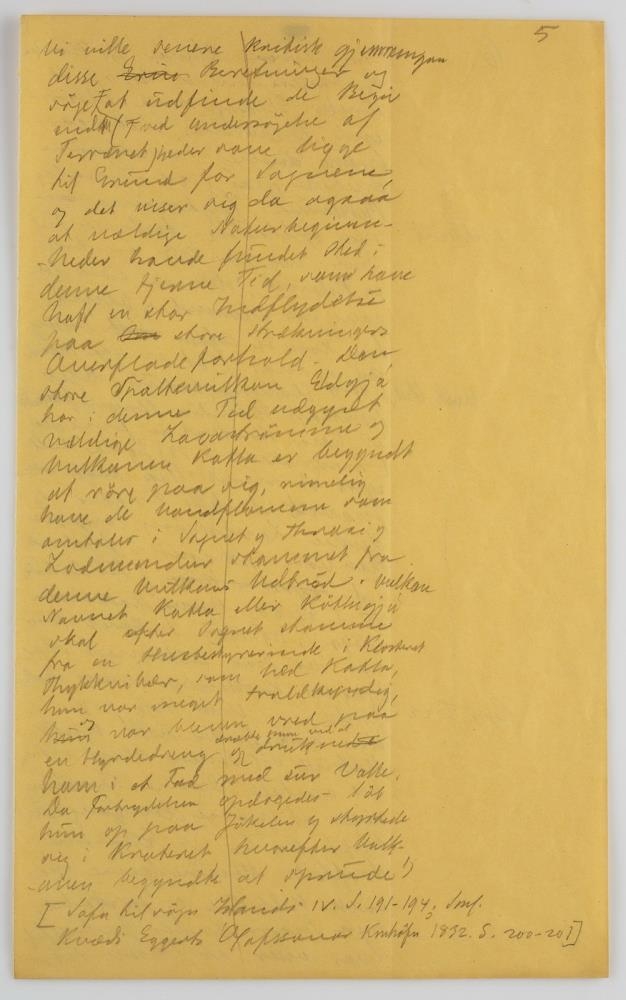 5
Vi ville senere kritisk gjennemgaa
disse Beretninger og
søge at udfinde de Begiv
ved Undersøgelse af
Terrænet heder som ligge
til Grund for Sagnene,
og det viser sig da ogsaa
at vældige Naturbegiven-
-heder havde fundet Sted i
denne fjerne Tid, som have
haft en stor Indflydelse
paa store Strækningers
Overfladeforhold. Den
store Spaltevulkan Eldgjá
har i denne Tid udgydt
vældige Lavastrømme og
Vulkanen Katla er begyndt
at röre paa sig, rimelig
have de Vandflommene som
omtales i Sagnet og Thrasi og
Lodmundur stammet fra
denne Vulkans Udbrud. Vulkan
Navnet Katla eller Kötlugjá
skal efter Sagnet stamme
fra en Husbestyrerinde i Klosteret
Thykkvibær, som hed Katla,
hun var meget troldkyndig,
var bleven vred paa
en Hyrdedreng og dræbte ham ved at
ham i et Fad med sur Valle.
Da Forbrydelsen opdagedes löb
hun op paa Jökelen og styrtede
sig i Krateret hvorefter Vulk-
-anen begyndte at sprude!)
[Safn til sögu Islands IV. S. 191-194, Smf.
Kvædi Eggerts Olafssonar Kmhöfn 1832. S. 200-201]